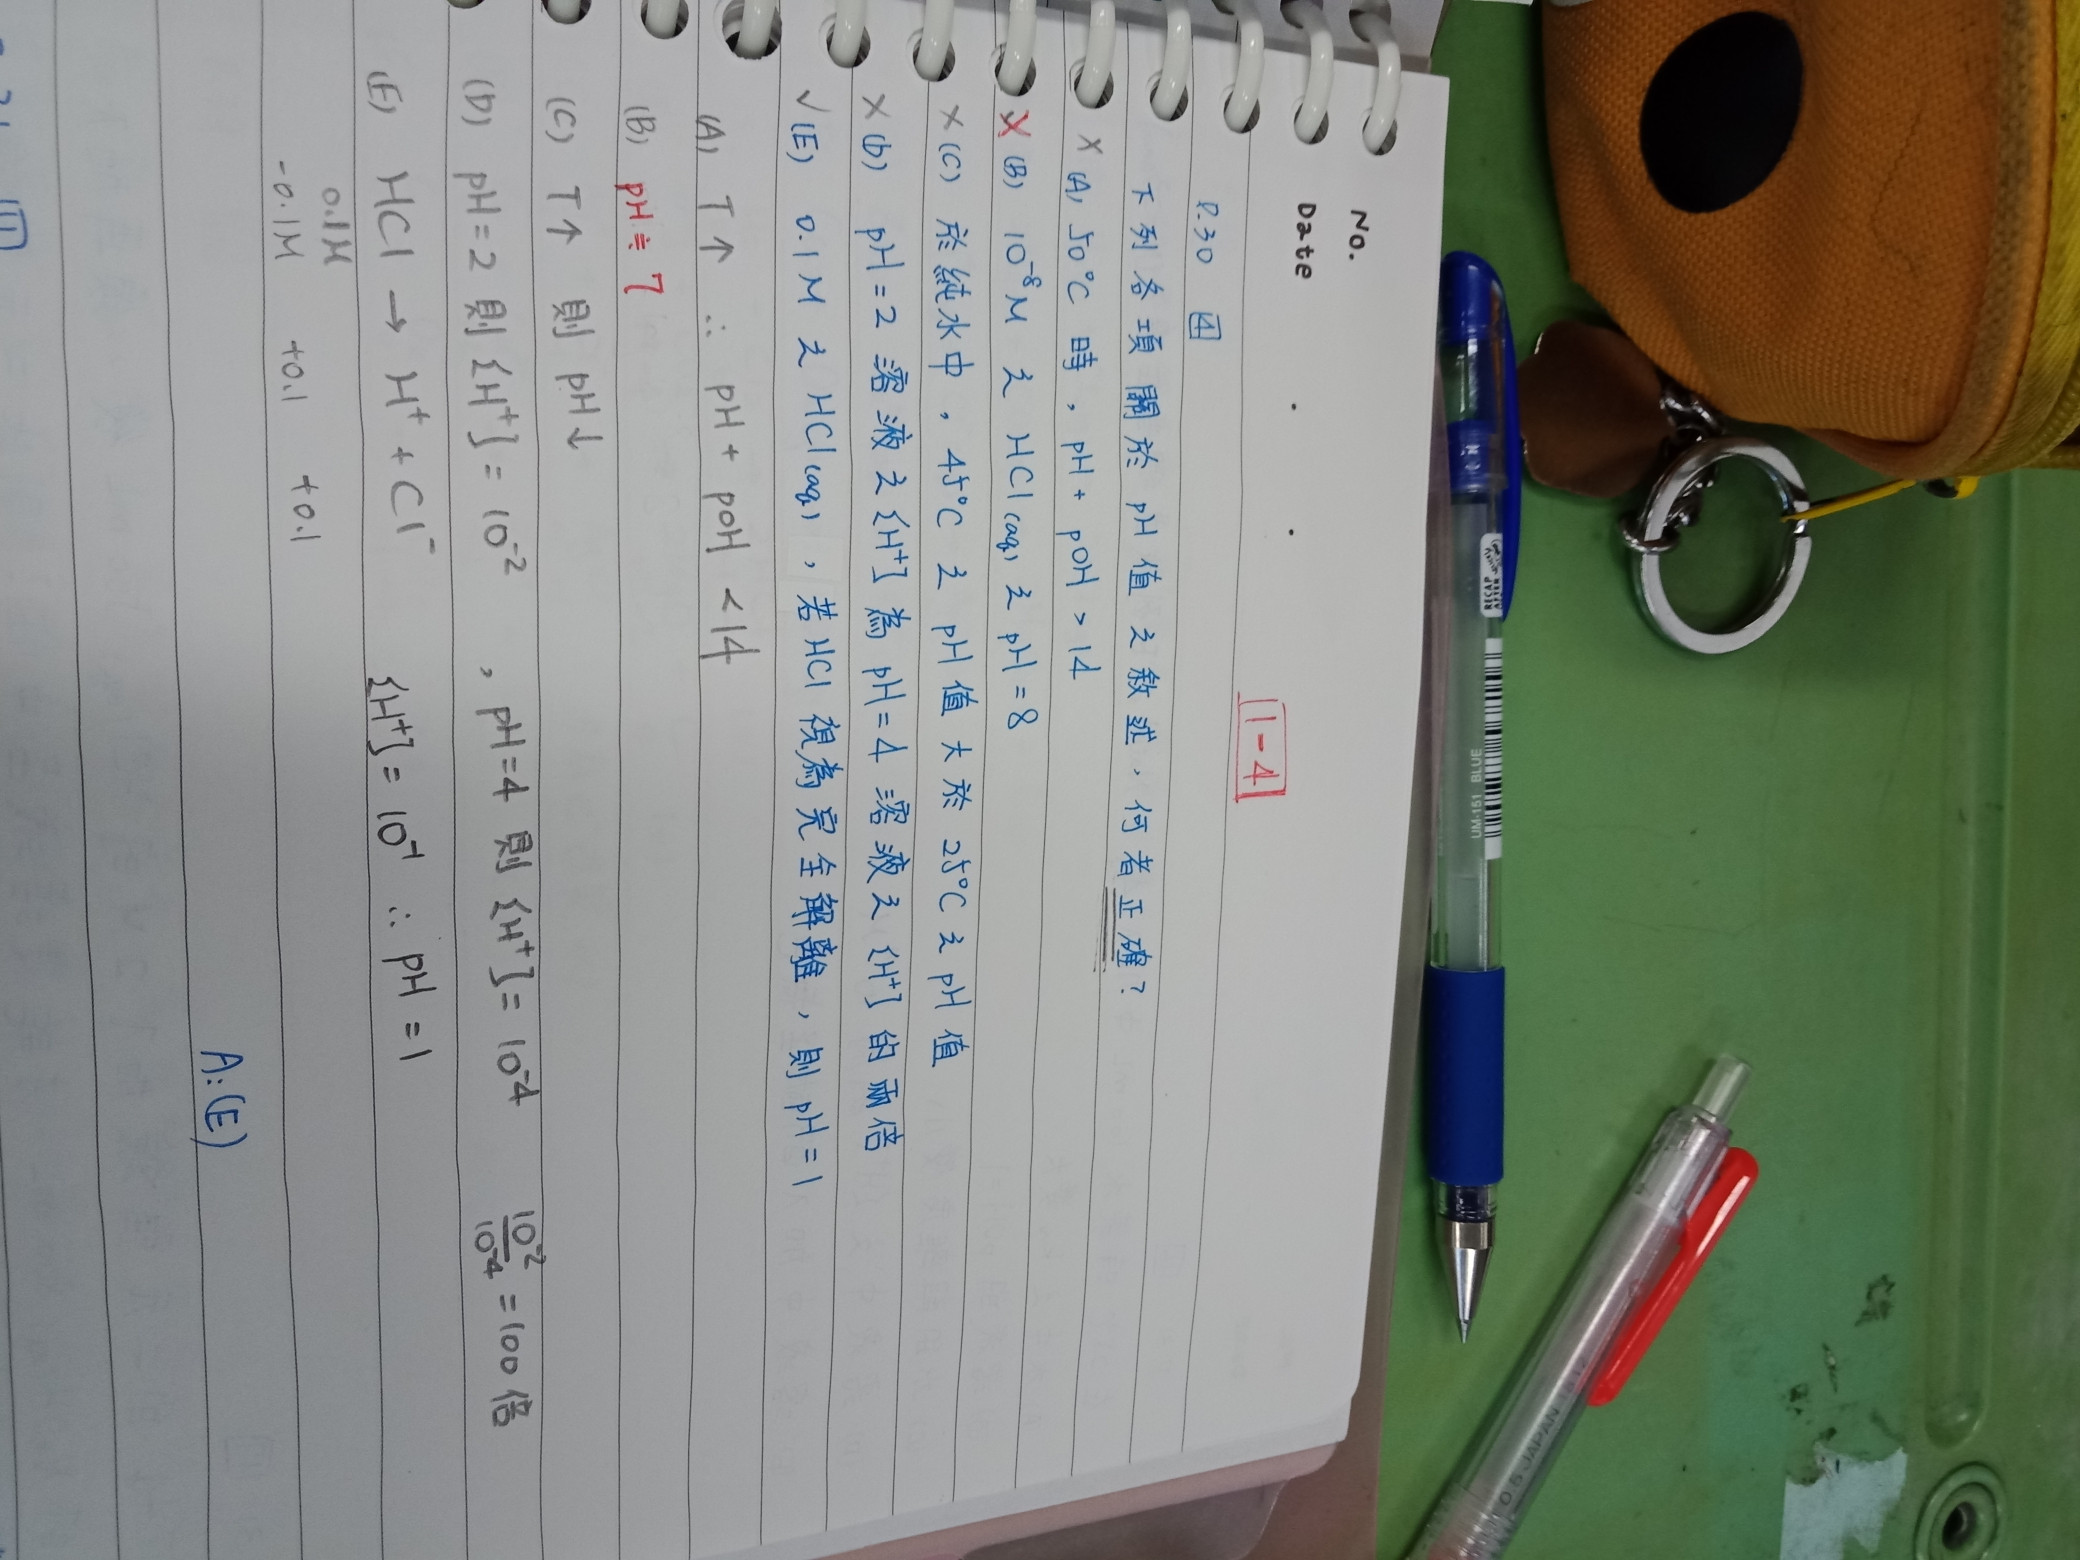 No.
Date
1-4
P.30 4
下列各項關於 pH 值之敘述，何者正確？
× (A) 50°C 時，pH + pOH > 14
× (B) 10⁻⁸M 之 HCl(aq) 之 pH = 8
× (C) 於純水中，45°C 之 pH 值大於 25°C 之 pH 值
× (D) pH = 2 溶液之 [H⁺] 為 pH = 4 溶液之 [H⁺] 的兩倍
✓ (E) 0.1 M 之 HCl(aq)，若 HCl 視為完全解離，則 pH = 1
(A) T↑ ∴ pH + pOH < 14
(B) pH ≒ 7
(C) T↑ 則 pH↓
(D) pH = 2 則 [H⁺] = 10⁻² , pH = 4 則 [H⁺] = 10⁻⁴ 10⁻²/10⁻⁴ = 100 倍
(E) HCl → H⁺ + Cl⁻ [H⁺] = 10⁻¹ ∴ pH = 1
0.1M
-0.1M +0.1 +0.1
A:(E)
11
RECAP AFTER
UM-151 BLUE
0.5 JAPAN